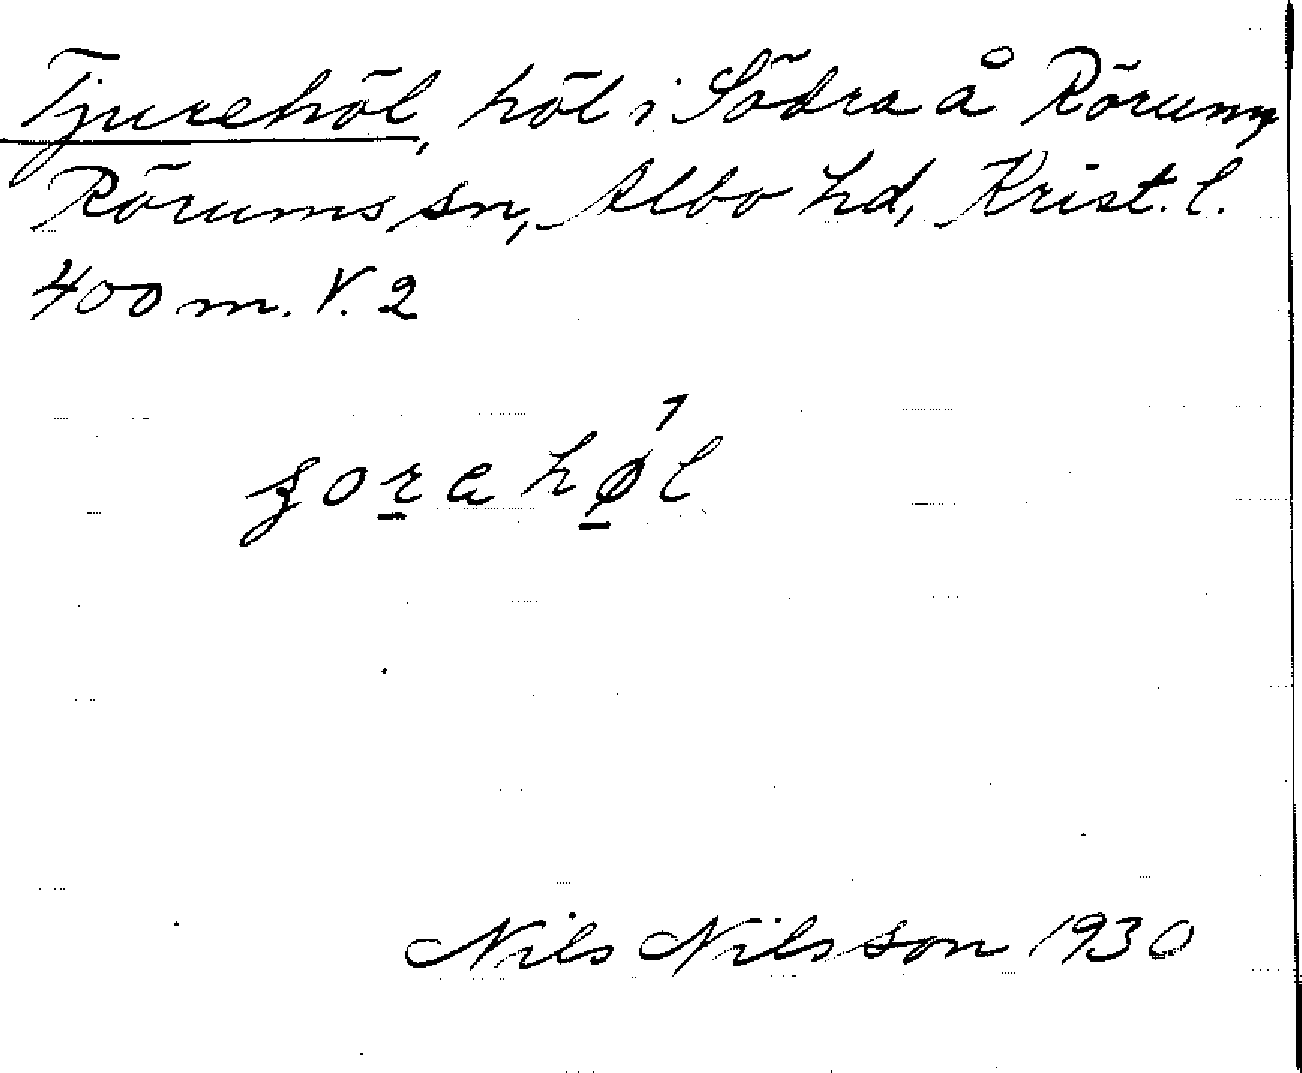 Tjurehöl, höl i Södra å Rörum,
Rörums sn, Albo hd, Krist. l.
400 m. V. 2
Nils Nilsson 1930